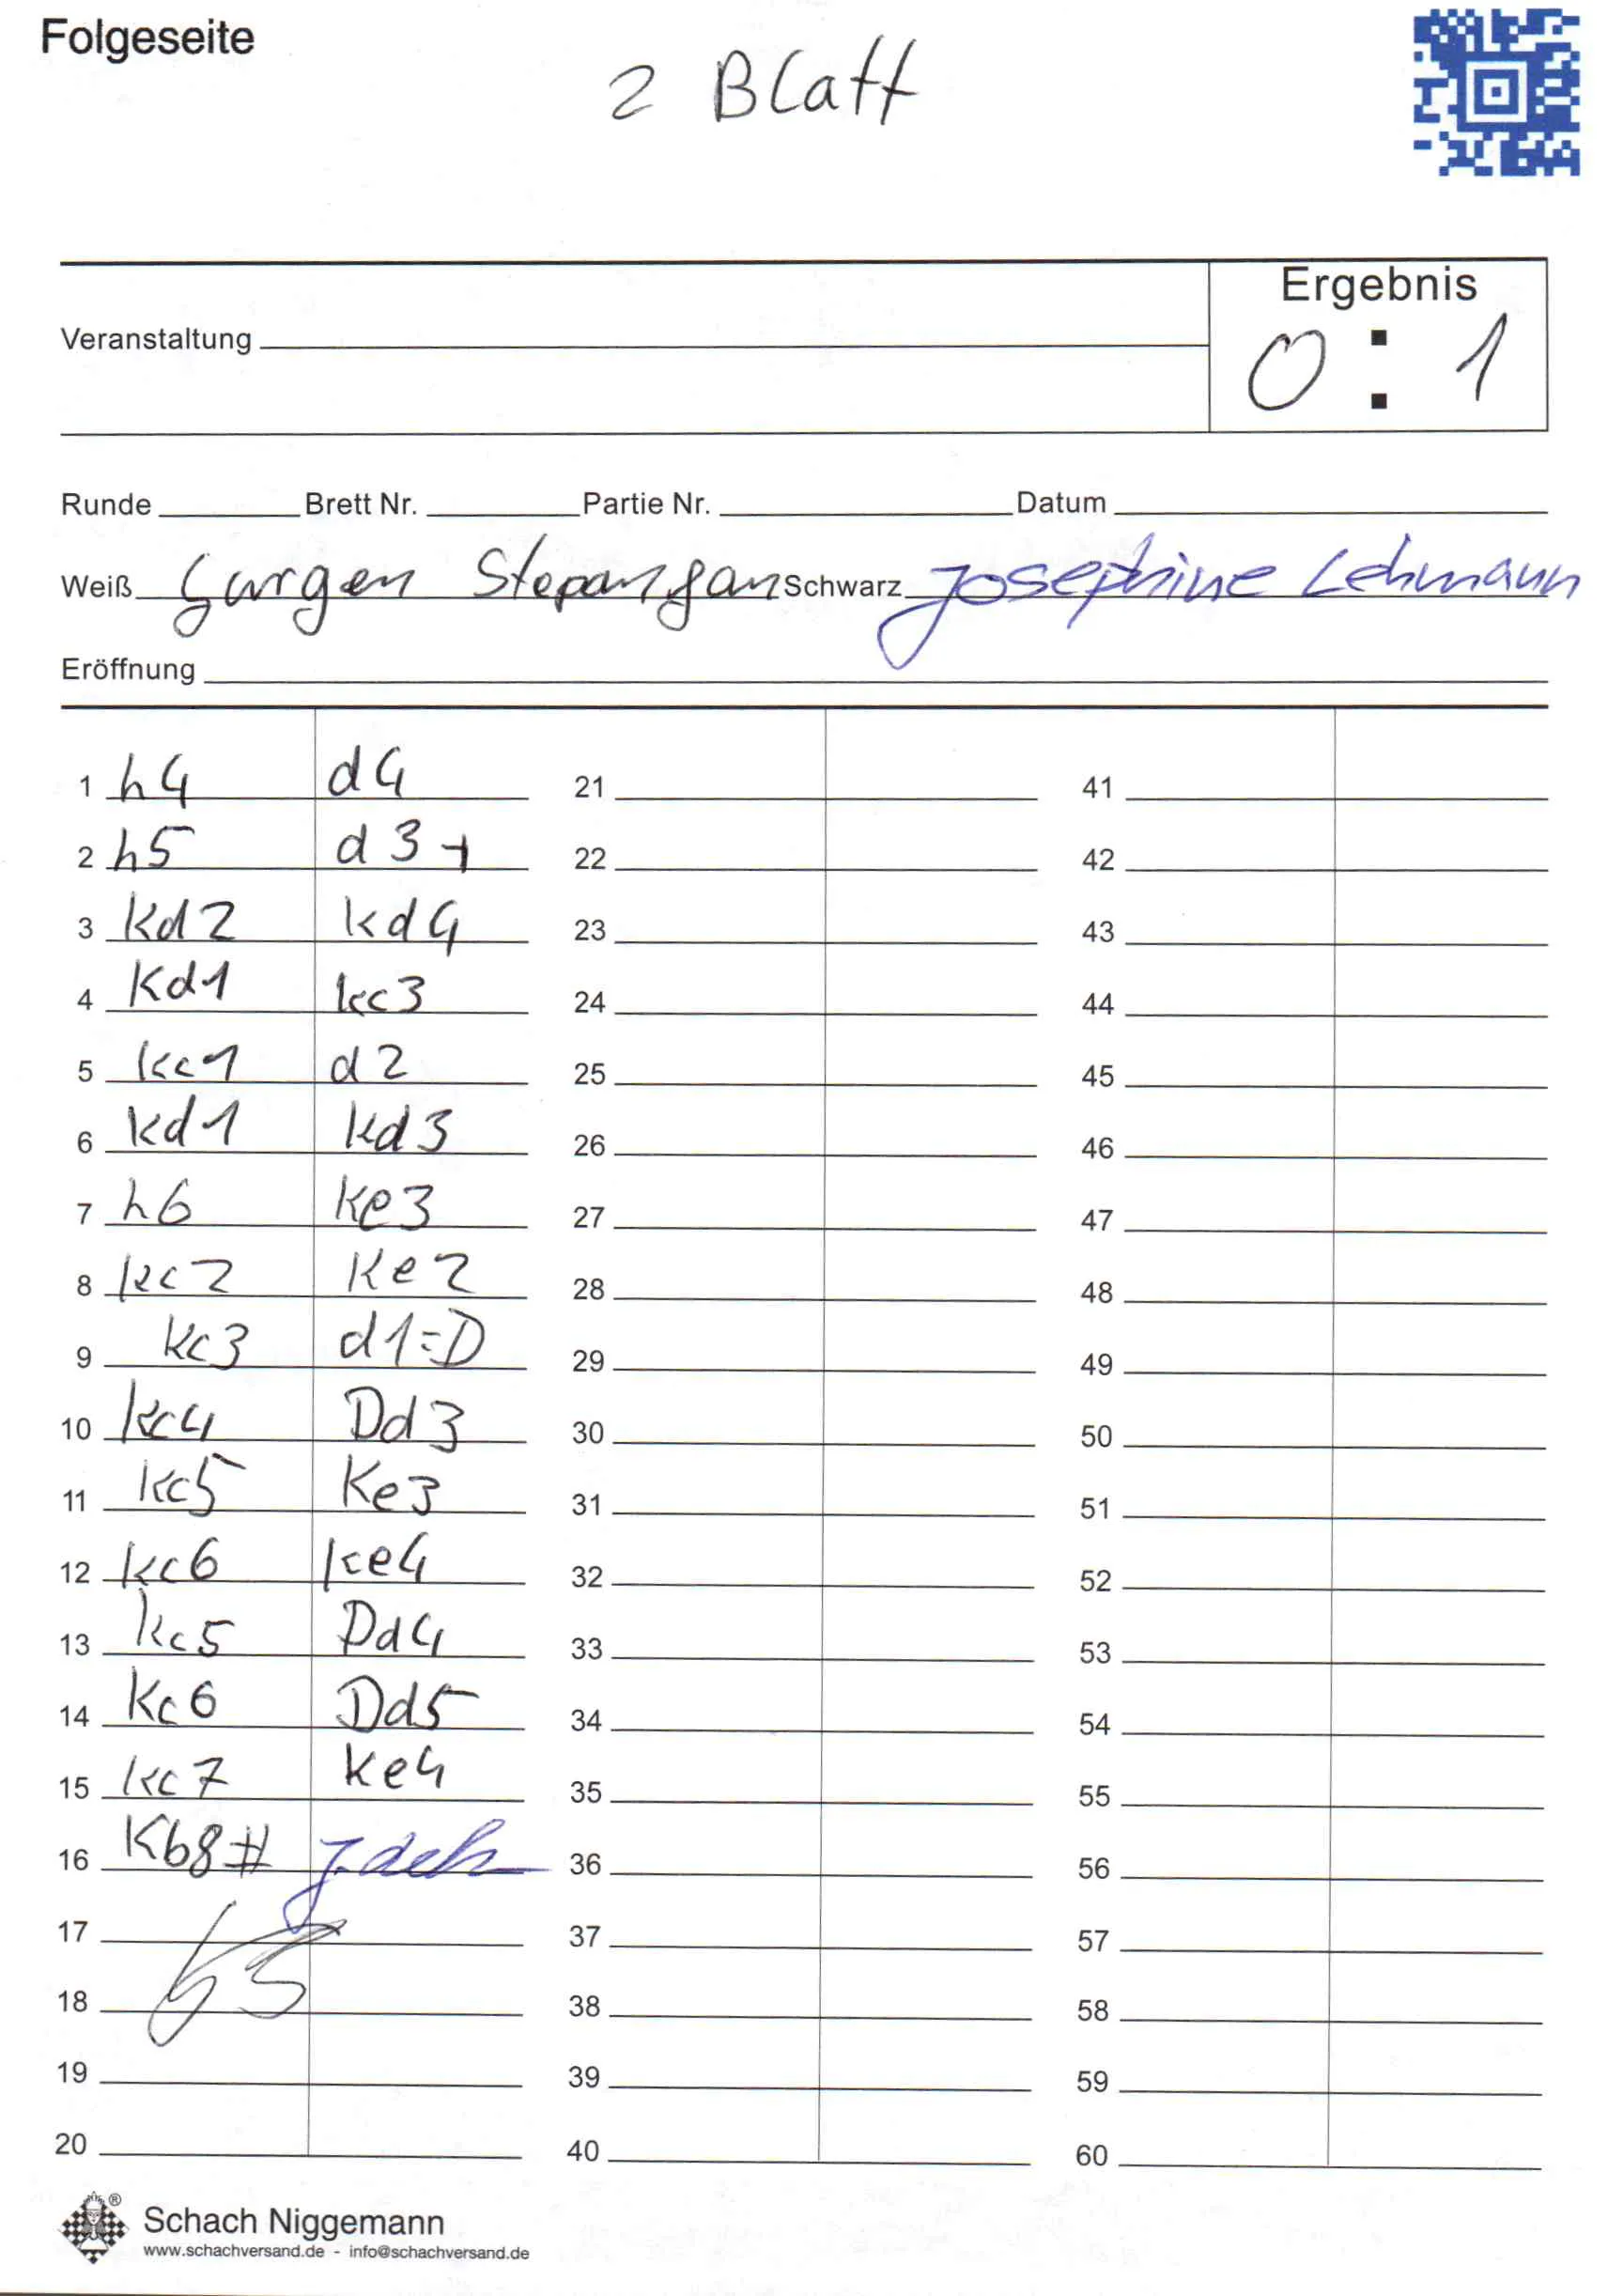 Folgeseite
2 Blatt
Ergebnis
0 : 1
Veranstaltung
Runde Brett Nr. Partie Nr. Datum
Weiß Gurgen Stepanyan Schwarz Josephine Lehmann
Eröffnung
1 h4 d4 21 41
2 h5 d3+ 22 42
3 Kd2 Kd4 23 43
4 Kd1 Kc3 24 44
5 Kc1 d2 25 45
6 Kd1 Kd3 26 46
7 h6 Ke3 27 47
8 Kc2 Ke2 28 48
9 Kc3 d1=D 29 49
10 Kc4 Dd3 30 50
11 Kc5 Ke3 31 51
12 Kc6 Ke4 32 52
13 Kc5 Dd4 33 53
14 Kc6 Dd5 34 54
15 Kc7 Ke4 35 55
16 Kb8# 36 56
17 37 57
18 38 58
19 39 59
20 40 60
Schach Niggemann ®
www.schachversand.de - info@schachversand.de